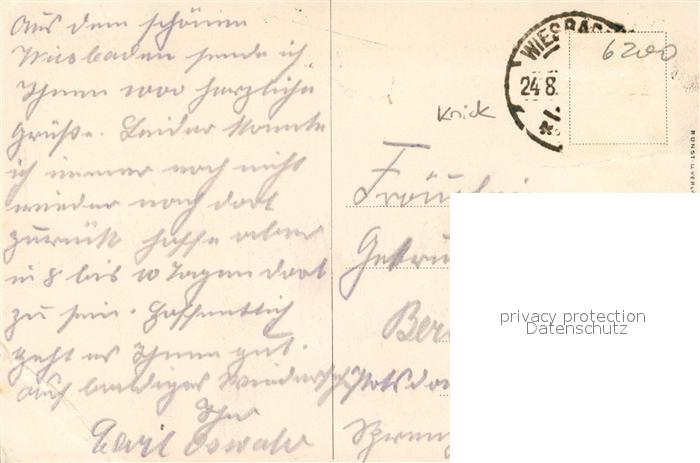 Aus dem schönen
Wiesbaden sende ich
Ihnen 1000 herzliche
Grüße. Leider konnte
ich immer noch nicht
wieder nach dort
zurück hoffe aber
in 8 bis 10 Tagen dort
zu sein. Hoffentlich
geht es Ihnen gut.
Auf baldiges Wiedersehn
Ihr
Carl Oswald
WIESBAD
24 8.
6200
Knick
Fräulein
Gertru
Ber
Potsdam
KUNST-U.VERL
privacy protection
Datenschutz